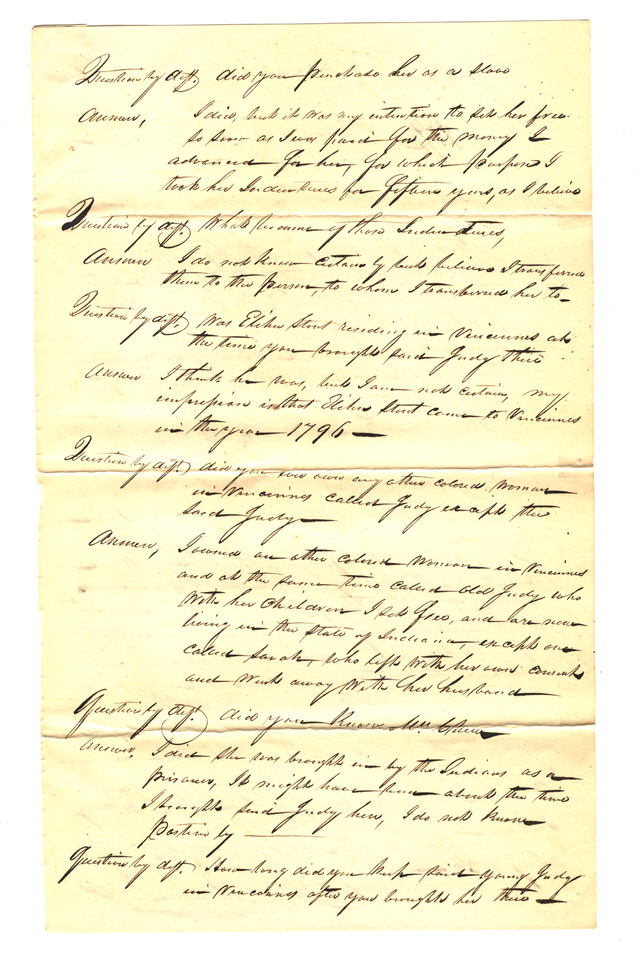 Question by dfft. did you purchase her as a slave
Answer, I did, but it was my intention to set her free
so soon as I was paid for the money I
advanced for her, for which purpose I
took her Indentures for fifteen years, as I believe
Question by dfft. What became of those Indentures,
Answer I do not know certainly but believe I transferred
them to the person, to whom I transferred her to—
Question by dfft. Was Elihu Stout residing in Vincennes at
the time you brought said Judy there
Answer I think he was, but I am not certain, my
impression is that Elihu Stout came to Vincennes
in the year 1796—
Question by dfft. did you ever own any other colored woman
in Vincennes called Judy except the
said Judy—
Answer, I owned an other colored woman in Vincennes
and at the same time called old Judy who
with her children I set free, and are now
living in the State of Indiana, except one
called Sarah, who left with her own consent
and went away with her husband
Question by dfft. did you know Mrs.
Answer. I did she was brought in by the Indians as a
prisoner, It might have been about the time
I brought said Judy here, I do not know
positively —
Question by dfft. How long did you keep said young Judy
in Vincennes after you brought her there —